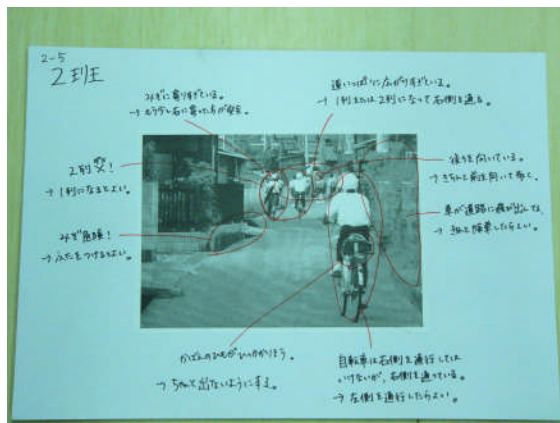 2-5
2班
みぞに寄りすぎている。
→もう少し右に寄った方が安全。
道いっぱいに広がりすぎている。
→1列または2列になって右側を通る。
2列
→1列になるとよい。
後ろを向いている。
→きちんと前を向いて歩く。
みぞ危険!
→ふたをつけるとよい。
草が道路に
→
かばんのひもがひっかかりそう。
→ちゃんと出ないようにする。
自転車は右側を通行しては
いけないが、右側を通っている。
→左側を通行したらよい。